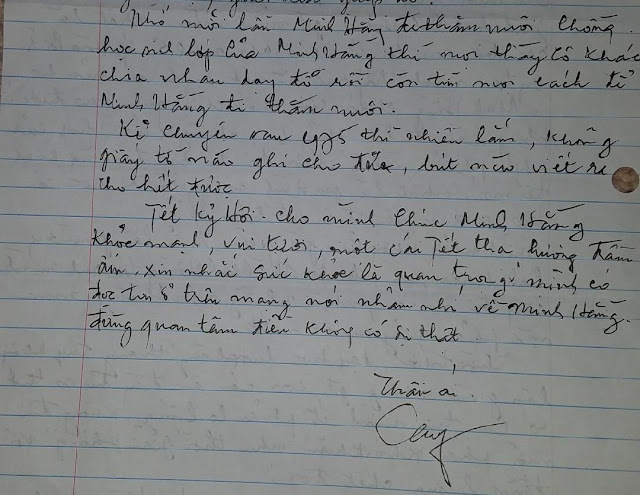 Nhớ mỗi lần Minh Hằng đi thăm nuôi chồng
học sinh lớp của Minh Hằng thì mọi thầy cô khác
chia nhau dạy đỡ rồi còn tìm mọi cách để
Minh Hằng đi thăm nuôi.
Kể chuyện sau 1975 thì nhiều lắm, không
giấy tờ nào ghi cho đủ, bút nào viết
cho hết được
Tết Kỷ Hợi cho mình chúc Minh Hằng
khỏe mạnh, vui tươi, một cái Tết tha hương đầm
ấm. Xin nhắc sức khỏe là quan trọng mình có
đọc tin trên mạng nói nhảm nhí về Minh Hằng.
đừng quan tâm điều không có sự thật
Thân ái.